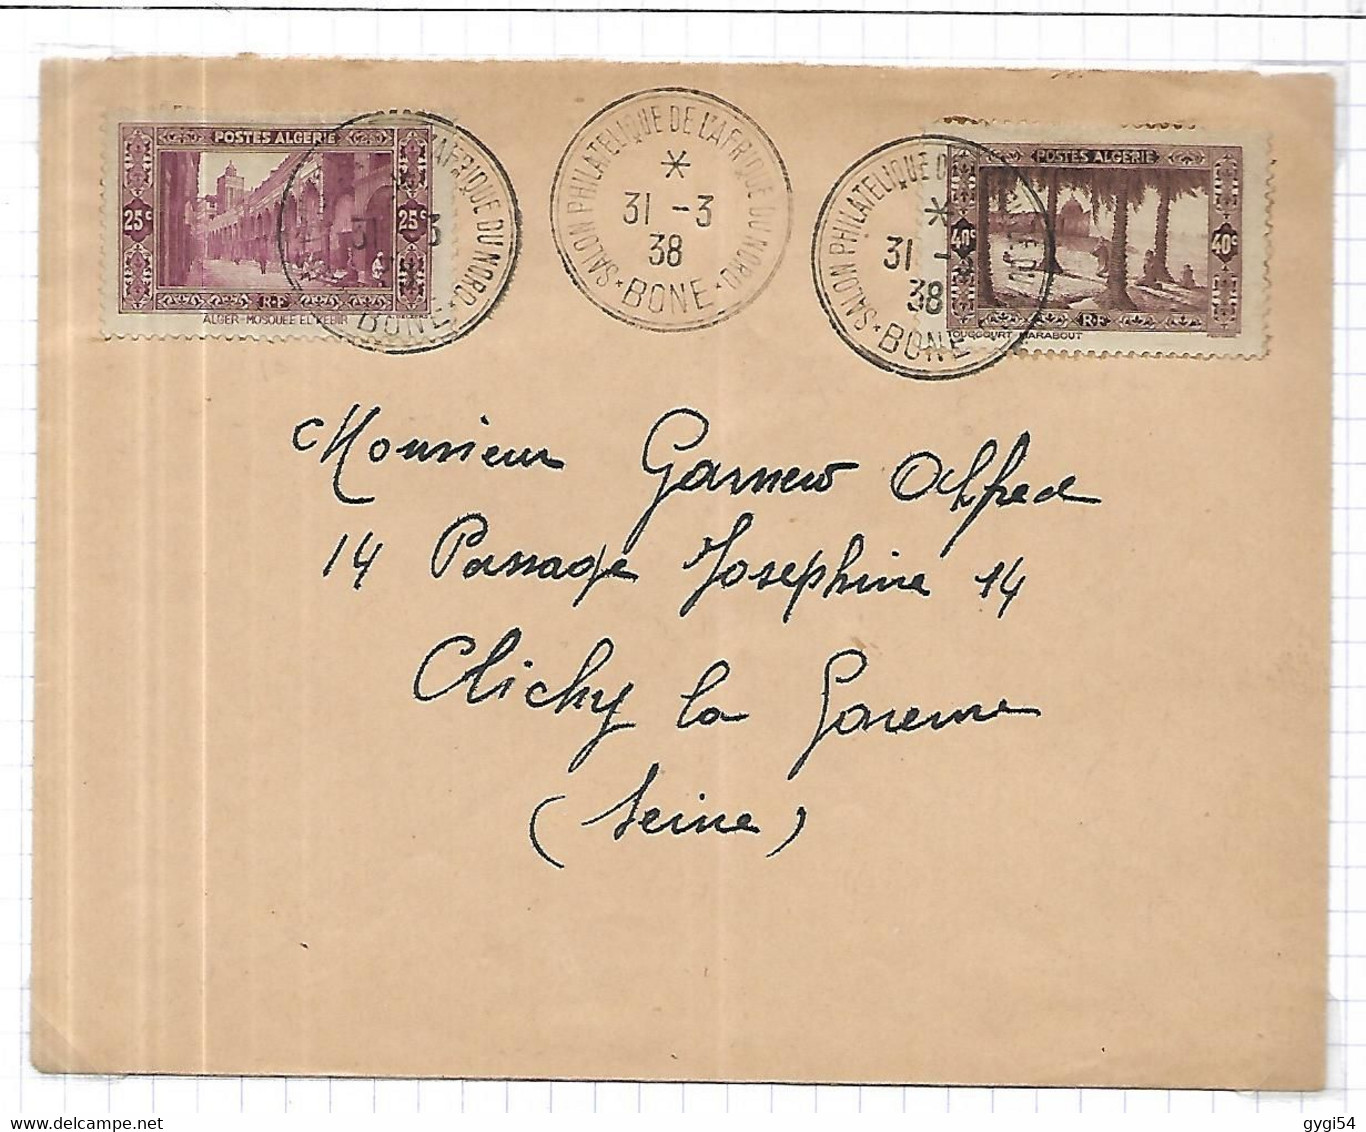 POSTES ALGERIE
25c 25c
R·F
ALGER-MOSQUEE EL KEBIR
L'AFRIQUE DU NORD
31 -3
BONE
SALON PHILATELIQUE DE L'AFRIQUE DU NORD
31 -3
38
BONE
SALON PHILATELIQUE
31 -
38
BONE
POSTES ALGERIE
40c 40c
R·F
TOUGGOURT MARABOUT
Monsieur Alfred
14 Passage Josephine 14
Clichy la Garenne
(Seine)
gygi54